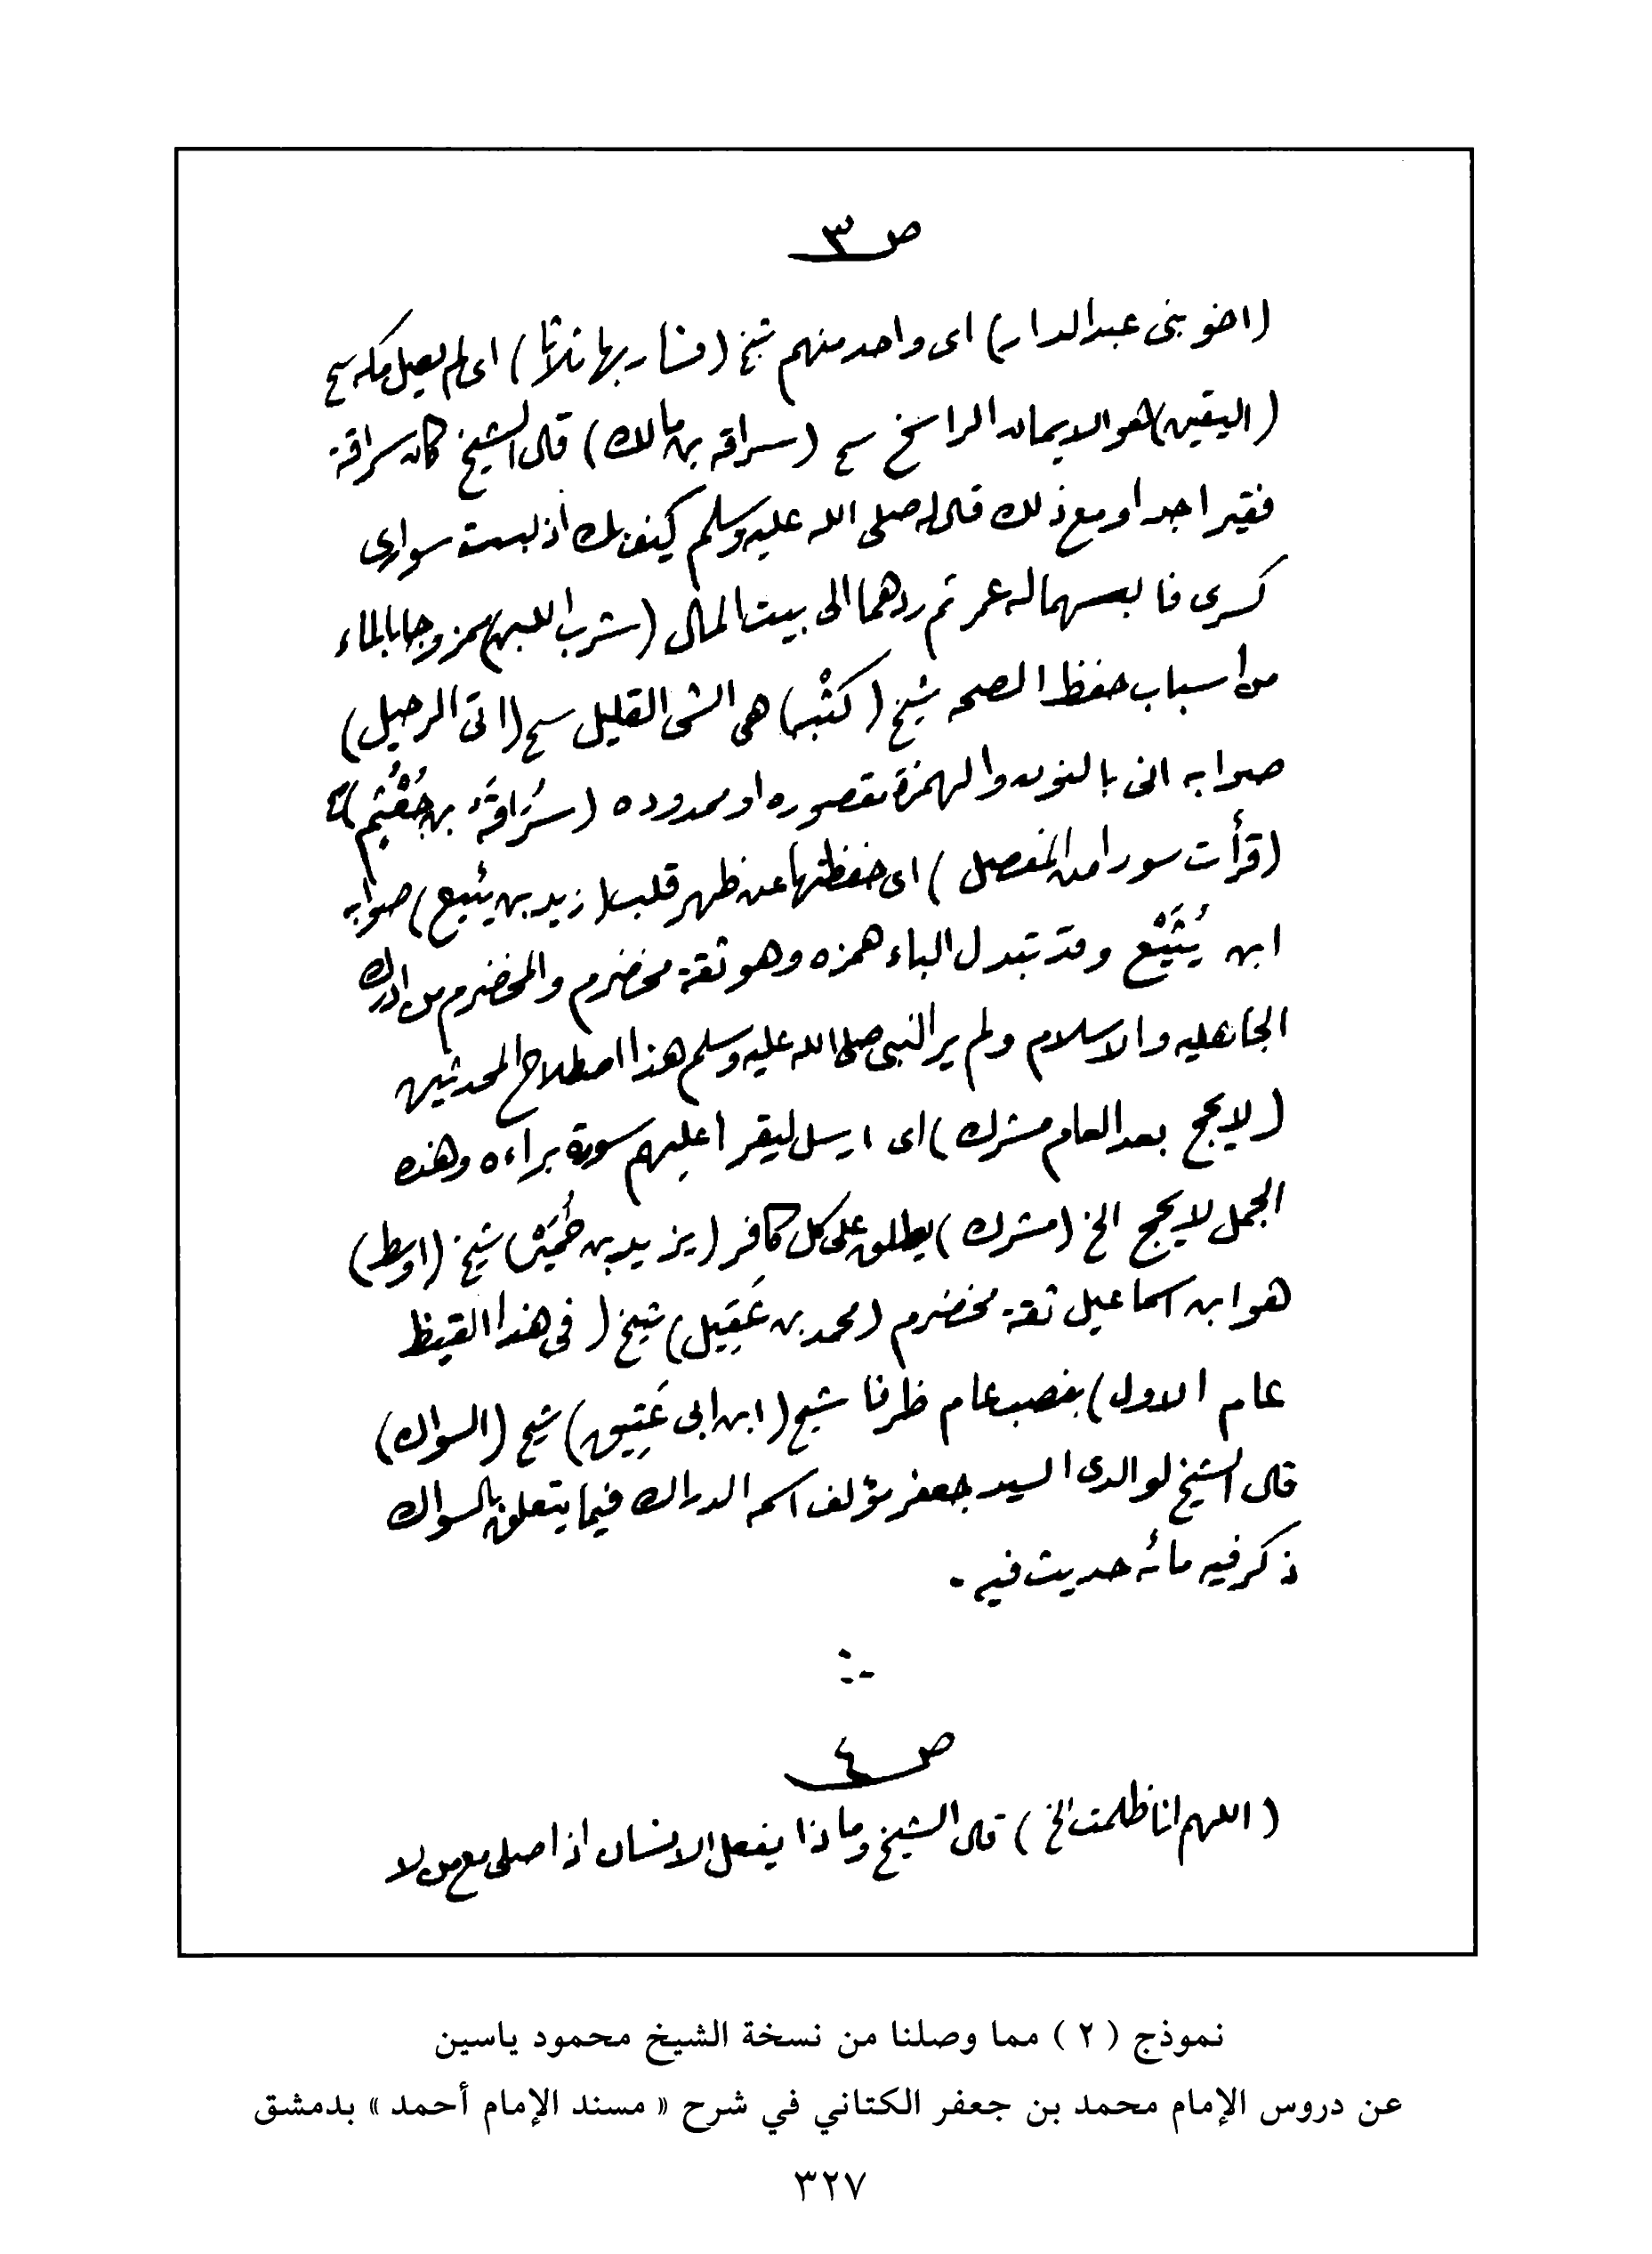 ص ٣
(اخو بنى عبد الدار) اى واحد منهم شيخ (فسار بها ثلاثا) اى لم يصل مكه شيخ
(اليقين) هو الايمان الراسخ شيخ (سراقه بن مالك) قال الشيخ كان سراقة
فقيرا جدا ومع ذلك قال له صلى الله عليه وسلم كيف بك اذ لبست سوارى
كسرى فالبسهما له عمر ثم ردهما الى بيت المال (شرب اللبن) ممزوجا بالماء
من اسباب حفظ الصحه شيخ (كثبه) هى الشى القليل شيخ (اتى الرحيل)
صوابه انى بالنون والهمزة مقصوره او ممدوده (سُرَاقَة بن جُعْثُم)
(قرأت سورا من المفصل) اى حفظتها عن ظهر قلب (زيد بن يثيع) صوابه
ابن يُثَيْع وقد تبدل الياء همزه وهو ثقة مخضرم والمخضرم من ادرك
الجاهليه والاسلام ولم ير النبى صلى الله عليه وسلم هذا اصطلاح المحدثين
(لا يحج بعد العام مشرك) اى ارسل ليقرا عليهم سورة براءه وهذه
الجمل لا يحج الخ (مشرك) يطلق على كل كافر (يزيد بن خُمَيْر) شيخ (اوسط)
هو ابن اسماعيل ثقة مخضرم (محمد بن عَقِيل) شيخ (فى هذا القيظ
عام الاول) بنصب عام ظرفا شيخ (ابن ابى عَتِيق) شيخ (السواك)
قال الشيخ لوالدى السيد جعفر مؤلف اسمه الدراك فيما يتعلق بالسواك
ذكر فيه مائه حديث فيه .
ص ٤
(اللهم انا ظلمت الخ) قال الشيخ وماذا يفعل الانسان اذا صلى مع من لا
نموذج ( ٢ ) مما وصلنا من نسخة الشيخ محمود ياسين
عن دروس الإمام محمد بن جعفر الكتاني في شرح « مسند الإمام أحمد » بدمشق
٣٢٧